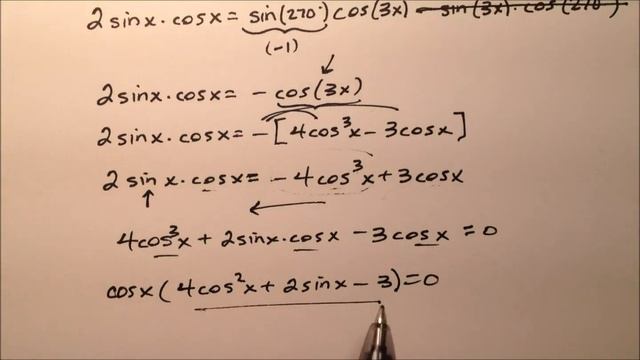 2sinx·cosx= sin(270°)cos(3x) - sin(3x)·cos(270°)
(-1)
2sinx·cosx= - cos(3x)
2sinx·cosx= -[4cos³x-3cosx]
2sinx·cosx= -4cos³x+3cosx
4cos³x+2sinx·cosx-3cosx=0
cosx(4cos²x+2sinx-3)=0